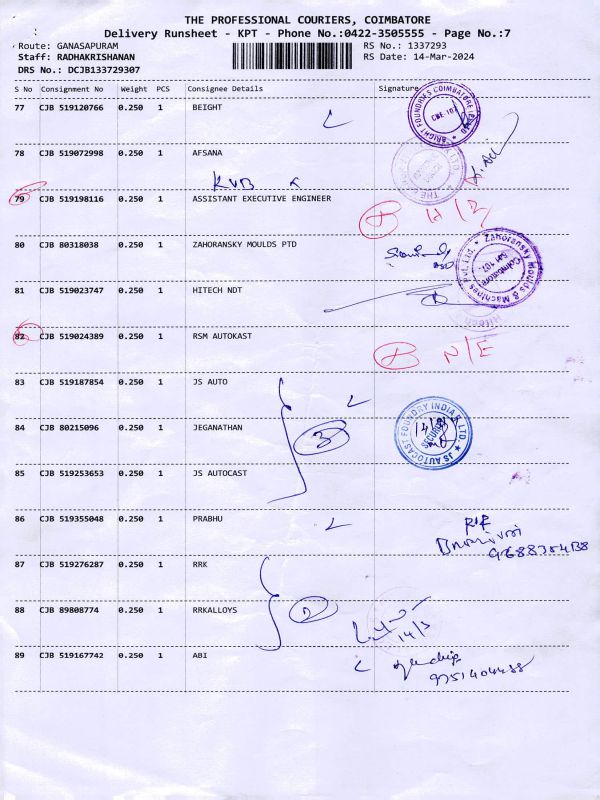 THE PROFESSIONAL COURIERS, COIMBATORE
Delivery Runsheet - KPT - Phone No.:0422-3505555 - Page No.:7
Route: GANASAPURAM
RS No.: 1337293
Staff: RADHAKRISHANAN
RS Date: 14-Mar-2024
DRS No.: DCJB133729307
S No Consignment No Weight PCS Consignee Details Signature
77 CJB 519120766 0.250 1 BEIGHT
78 CJB 519072998 0.250 1 AFSANA
KVB
79 CJB 519198116 0.250 1 ASSISTANT EXECUTIVE ENGINEER
80 CJB 80318038 0.250 1 ZAHORANSKY MOULDS PTD
Zahoransky Moulds & Machines Pvt. Ltd.
Coimbatore
81 CJB 519023747 0.250 1 HITECH NDT
82 CJB 519024389 0.250 1 RSM AUTOKAST
N/E
83 CJB 519187854 0.250 1 JS AUTO
84 CJB 80215096 0.250 1 JEGANATHAN
3
JS AUTOCAST FOUNDRY INDIA P LTD
SECURITY
85 CJB 519253653 0.250 1 JS AUTOCAST
86 CJB 519355048 0.250 1 PRABHU
87 CJB 519276287 0.250 1 RRK
88 CJB 89808774 0.250 1 RRKALLOYS
2
14/3
89 CJB 519167742 0.250 1 ABI
9751404488